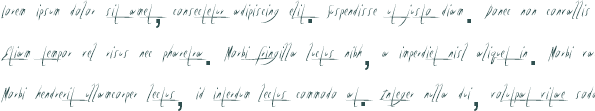 lorem ipsum dolor sit amet, consectetur adipiscing elit. Suspendisse ut justo diam. Donec non convallis
Etiam tempor vel risus nec pharetra. Morbi fringilla luctus nibh, a imperdiet nisl aliquet in. Morbi va
Morbi hendrerit ullamcorper lectus, id interdum lectus commodo at. Integer nulla dui, volutpat vitae soda